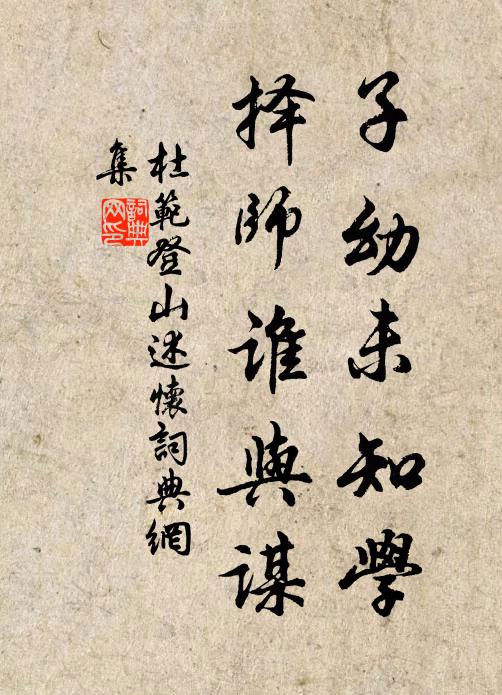 子幼未知學
择師谁與謀
杜範登山述懷詞典網
集
詞典
网印